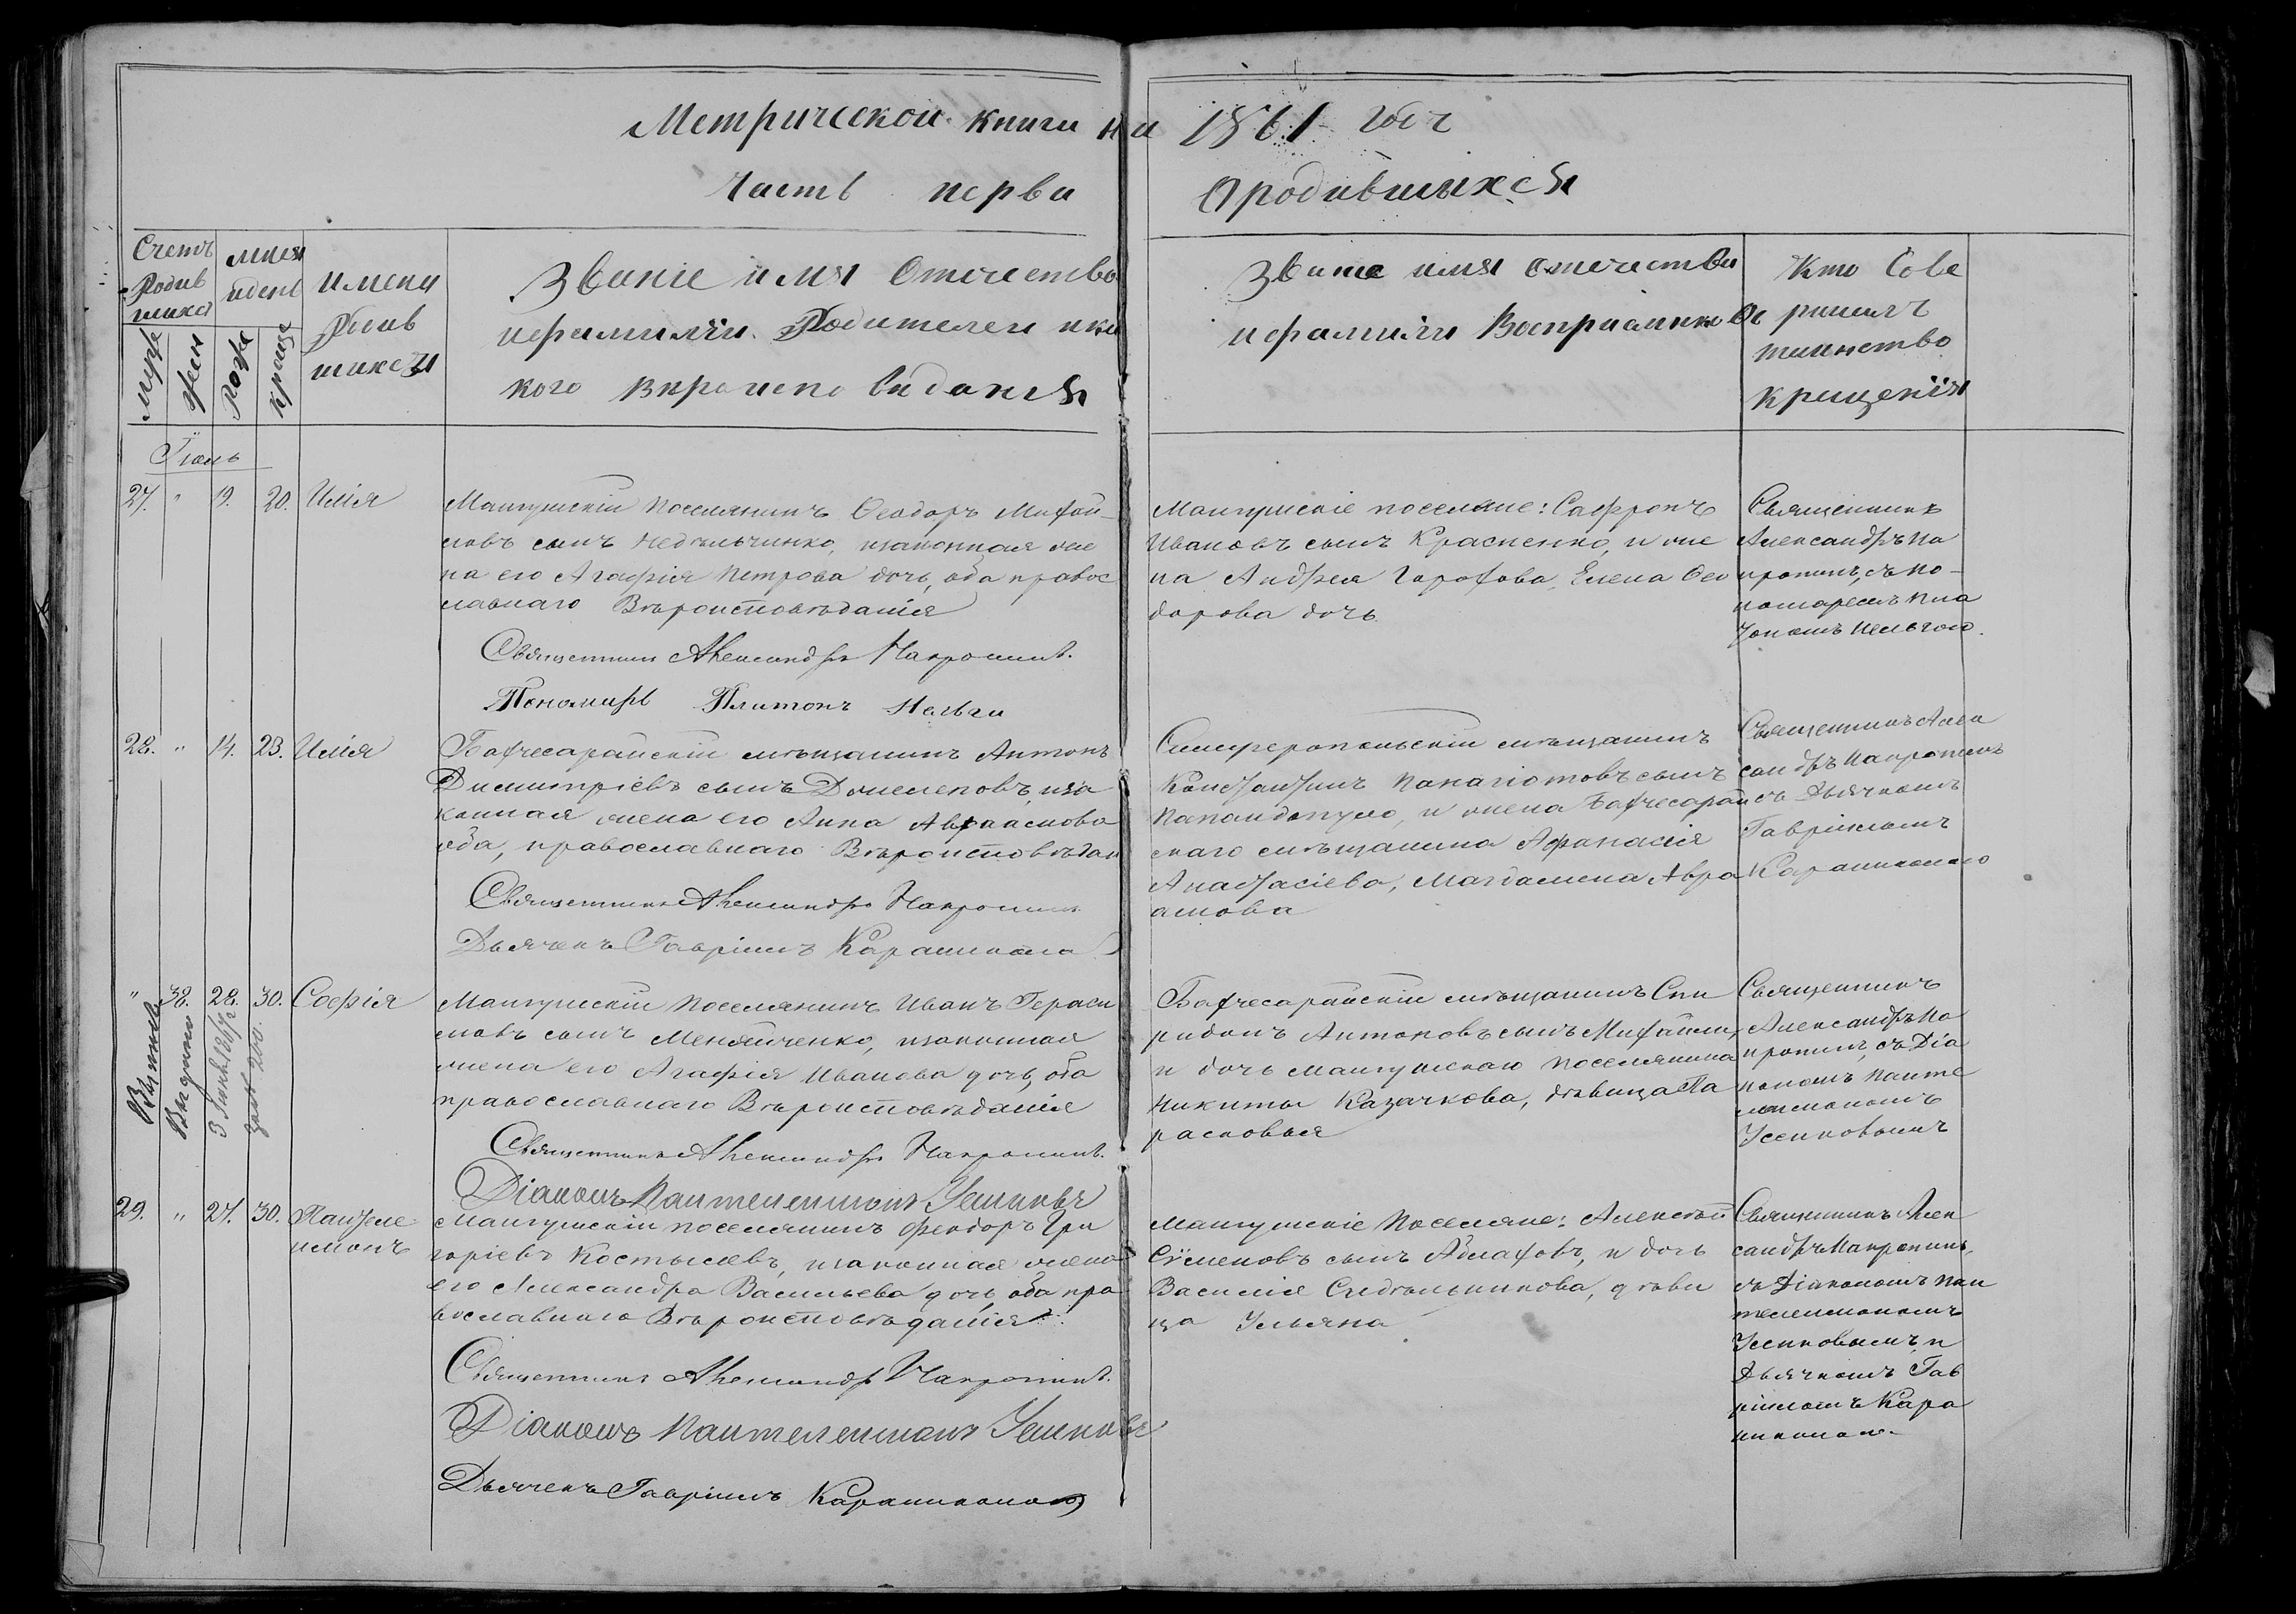 Метрической книги на 1861 годъ
Часть перва
О родившихся
Счетъ родив шихся
мися и день
имена родив шихся
Званіе имя Отечество
и фамиліи Родителей и ка
кого вироисповиданія
Званіе имя отечество
и фамиліи Восприемниковъ
Кто Сове
ршилъ
таинство
крищенія
муже
жен
Рожде
креще
Іюль
27. " 9. 20. Илія
Мангушскій поселянинъ Ѳеодоръ Михай-
ловъ сынъ Недѣльчинко, изаконная же
на его Агафія Петрова дочь, оба правос
лавнаго Вѣроисповѣданія
Священникъ Александръ Макропинъ.
Пономарь Платонъ
Мангушскіе поселяне: Сафронъ
Ивановъ сынъ Красненко, и же
на Андрея Горохова, Елена Ѳео
дорова дочь
Священникъ
Александръ Ма
кропинъ, съ по-
номаремъ Пла
тономъ
28. " 14. 23. Илія
Бахчесарайскій мѣщанинъ Антонъ
Димитріевъ сынъ Домененовъ, иза
конная жена его Анна Авраамова
оба, православнаго Вѣроисповѣдан
Священникъ Александръ Макропинъ
Дьячекъ Гавріилъ
Симферопольскій мѣщанинъ
Константинъ Панагіотовъ сынъ
Попандопуло, и жена Бахчесарай
скаго мѣщанина Афанасія
Анастасіева, Магдалена Авра
амова
Священникъ Алек
сандръ Макропинъ
съ Дьячкомъ
Гавріиломъ
" 38. 28. 30. Софія
Мангушскій поселянинъ Иванъ Гераси
мовъ сынъ Меняйленко, изаконная
жена его Агафія Иванова дочь, оба
православнаго Вѣроисповѣданія
Священникъ Александръ Макропинъ.
Діаконъ Пантелеимонъ Усиковъ
Бахчесарайскій мѣщанинъ Спи
ридонъ Антоновъ сынъ Михайли,
и дочь мангушскаго поселянина
Никиты Казачкова, дѣвица Па
расковья
Священникъ
Александръ Ма
кропинъ, съ Діа
кономъ Панте
леимономъ
Усиковымъ
29. " 27. 30. Пантеле
имонъ
Мангушскій поселянинъ Феодоръ Гри
горіевъ Костылевъ, изаконная жена
его Александра Васильева дочь, оба пра
вославнаго Вѣроисповѣданія
Священникъ Александръ Макропинъ.
Діаконъ Пантелеимонъ Усиковъ
Дьячекъ Гавріилъ
Мангушскіе Поселяне: Алексѣй
Сѵменовъ сынъ и дочь
Василія Сидѣльникова, дѣви
ца Ульяна
Священникъ Алек
сандръ Макропинъ,
съ Діакономъ Пан
телеимономъ
Усиковымъ, и
Дьячкомъ Гав
ріиломъ Кара